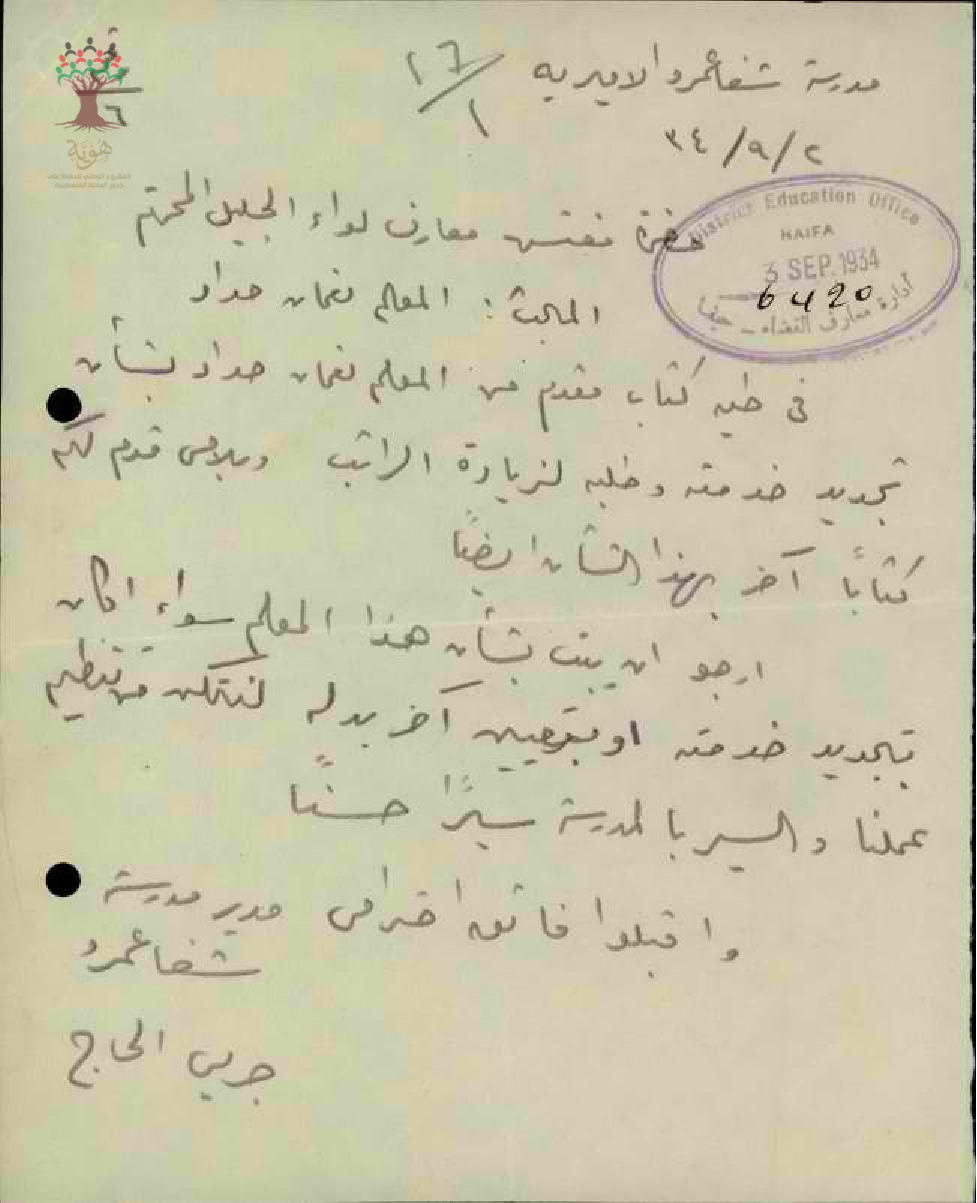 مدرسة شفاعمرو الاميريه ١٦/١
٣٤/٩/٢
هوية
District Education Office
HAIFA
3 SEP. 1934
6420
ادارة معارف القضاء - حيفا
حضرة مفتش معارف لواء الجليل المحترم
المبحث: المعلم نعمان حداد
في طيه كتاب مقدم من المعلم نعمان حداد بشأن
تجديد خدمته وطلبه لزيادة الراتب وبالامس قدم لكم
كتاباً آخر بهذا الشأن ايضاً
ارجو ان يبت بشأن هذا المعلم سواء اكان
بتجديد خدمته او بتعيين آخر بدله لنتمكن من تنظيم
عملنا والسير بالمدرسة سيراً حسناً
واقبلوا فائق احترامي مدير مدرسة
شفاعمرو
جريس الحاج